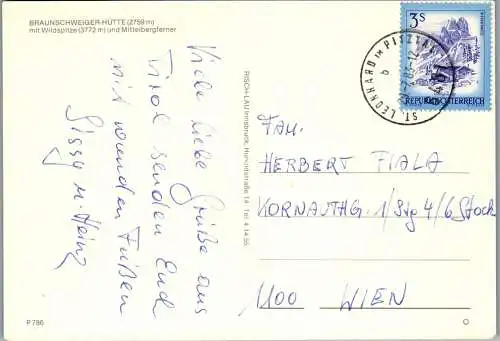 BRAUNSCHWEIGER-HÜTTE (2759 m)
mit Wildspitze (3772 m) und Mittelbergferner
Viele liebe Grüße aus
Tirol senden Euch
mit wunden Füßen
Sissy u. Heinz
P 786
RISCH-LAU Innsbruck, Hunoldstraße 14 Tel. 4 14 55
3 S
REPUBLIK ÖSTERREICH
ST. LEONHARD IM PITZTAL
b
FAM.
HERBERT FIALA
KORNAUTHG. 1/Stg 4/6 Stock
1100 WIEN